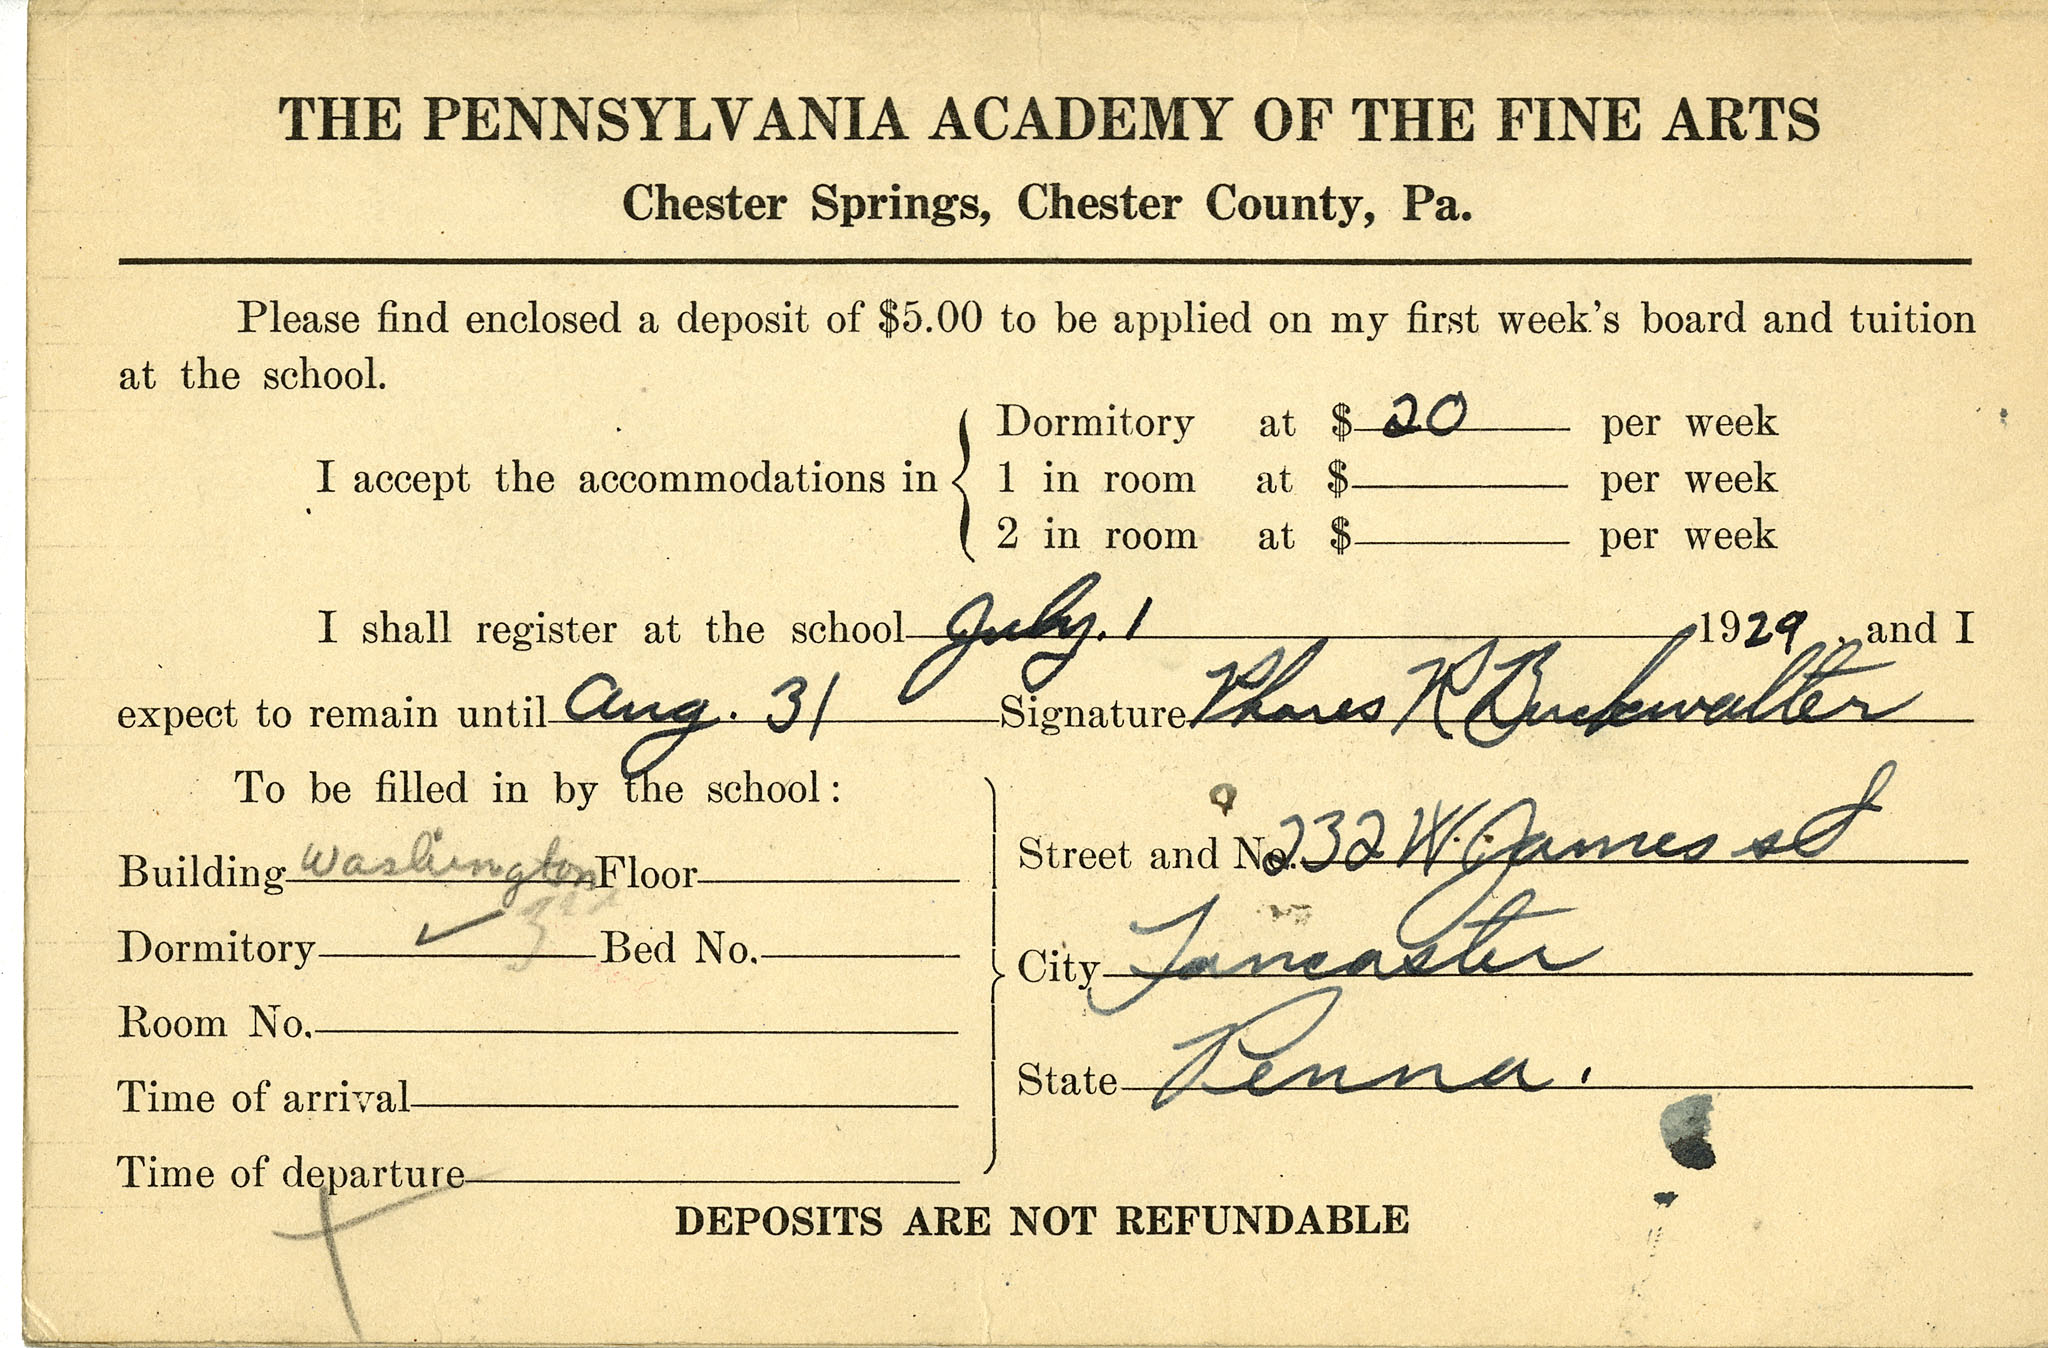 THE PENNSYLVANIA ACADEMY OF THE FINE ARTS
Chester Springs, Chester County, Pa.
Please find enclosed a deposit of $5.00 to be applied on my first week's board and tuition
at the school.
I accept the accommodations in
Dormitory at $ 20 per week
1 in room at $ per week
2 in room at $ per week
I shall register at the school July. 1 1929, and I
expect to remain until Aug. 31 Signature Phares R Buckwalter
To be filled in by the school:
Building Washington Floor
3rd
Dormitory ✓ Bed No.
Room No.
Time of arrival
Time of departure
Street and No. 232 W. James st
City Lancaster
State Penna.
DEPOSITS ARE NOT REFUNDABLE